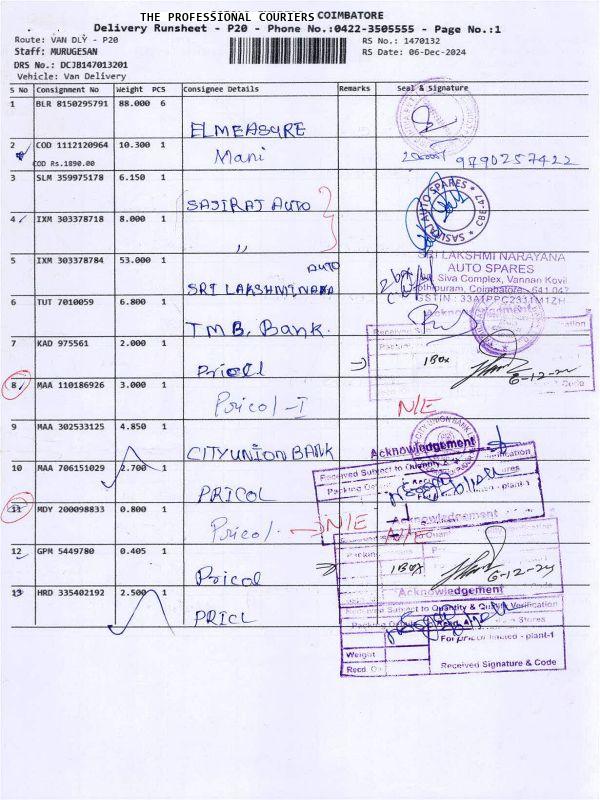 THE PROFESSIONAL COURIERS COIMBATORE
Delivery Runsheet - P20 - Phone No.:0422-3505555 - Page No.:1
Route: VAN DLY - P20
RS No.: 1470132
Staff: MURUGESAN
RS Date: 06-Dec-2024
DRS No.: DCJB147013201
Vehicle: Van Delivery
S No Consignment No Weight PCS Consignee Details Remarks Seal & Signature
1 BLR 8150295791 88.000 6
ELMEASURE
2 COD 1112120964 10.300 1
Mani
9790257422
COD Rs.1890.00
3 SLM 359975178 6.150 1
SASIRAJ AUTO
SASIRAJ AUTO SPARES * CBE-47 *
4 IXM 303378718 8.000 1
"
5 IXM 303378784 53.000 1
AUTO
SRI LAKSHMI NARA
SRI LAKSHMI NARAYANA
AUTO SPARES
Siva Complex, Vannan Kovil
Coimbatore - 641 047
GSTIN : 33AIPPC2331M1ZH
6 TUT 7010059 6.800 1
T M B. Bank.
7 KAD 975561 2.000 1
Pricol
1 Box
6-12-24
Code
8 MAA 110186926 3.000 1
Pricol-I
N/E
9 MAA 302533125 4.850 1
CITY UNION BANK
Acknowledgement
Received Subject to Quantity &
10 MAA 706151029 2.700 1
PRICOL
plant-1
11 MDY 200098833 0.800 1
Pricol. N/E
N/E
Acknowledgement
12 GPM 5449780 0.405 1
Pricol
1 Box
6-12-24
Acknowledgement
13 HRD 335402192 2.500 1
PRICL
Received Subject to Quantity & Quality Verification
Stores
For pricol limited - plant-1
Weight
Recd. On
Received Signature & Code